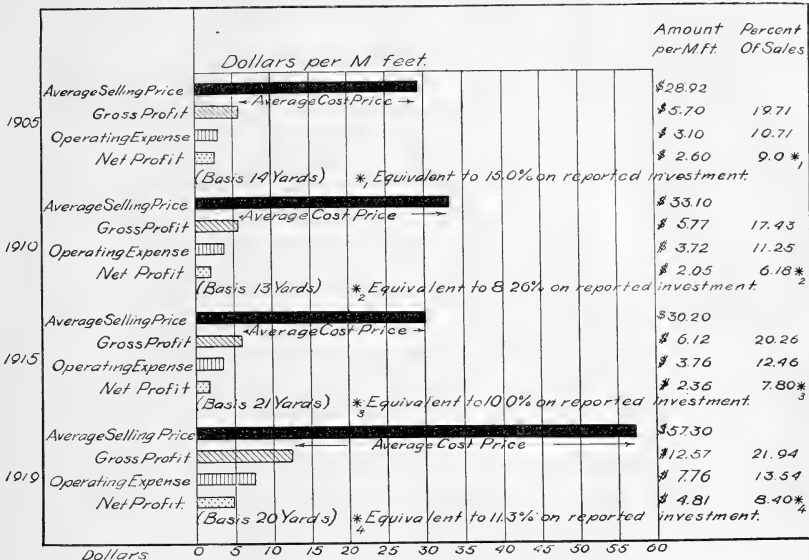 Amount Percent
per M.ft. Of Sales
Dollars per M feet.
Average Selling Price $28.92
Average Cost Price
1905
Gross Profit $5.70 19.71
Operating Expense $3.10 10.71
Net Profit $2.60 9.0 *1
(Basis 14 Yards) *1 Equivalent to 15.0% on reported investment.
Average Selling Price $33.10
Average Cost Price
Gross Profit $5.77 17.43
1910
Operating Expense $3.72 11.25
Net Profit $2.05 6.18 *2
(Basis 13 Yards) *2 Equivalent to 8.26% on reported investment.
Average Selling Price $30.20
Average Cost Price
Gross Profit $6.12 20.26
1915
Operating Expense $3.76 12.46
Net Profit $2.36 7.80 *3
(Basis 21 Yards) *3 Equivalent to 10.0% on reported investment.
Average Selling Price $57.30
Average Cost Price
Gross Profit $12.57 21.94
1919
Operating Expense $7.76 13.54
Net Profit. $4.81 8.40 *4
(Basis 20 Yards) *4 Equivalent to 11.3% on reported investment.
Dollars 0 5 10 15 20 25 30 35 40 45 50 55 60